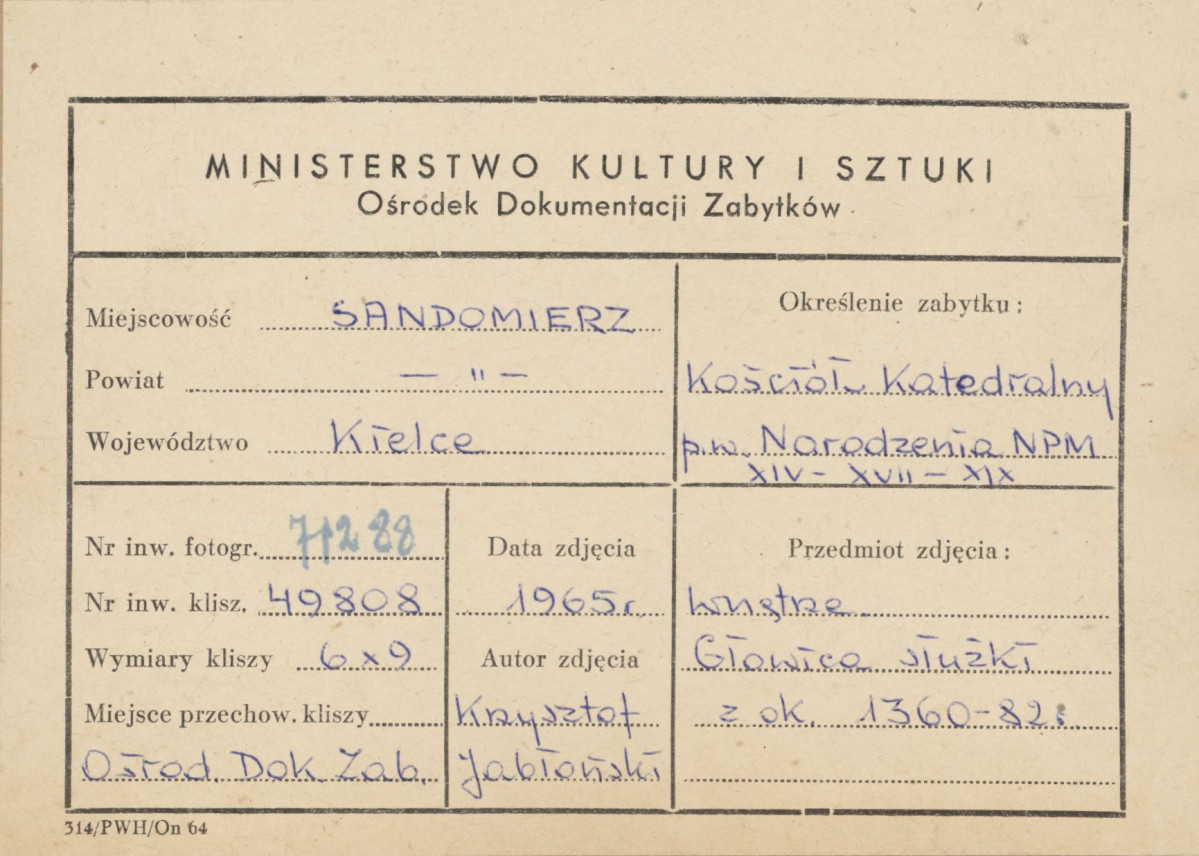 MINISTERSTWO KULTURY I SZTUKI
Ośrodek Dokumentacji Zabytków
Miejscowość SANDOMIERZ
Powiat — " —
Województwo Kielce
Określenie zabytku:
Kościół Katedralny
p.w. Narodzenia NPM
XIV - XVII - XIX
Nr inw. fotogr. 71288
Nr inw. klisz. 49808
Wymiary kliszy 6x9
Miejsce przechow. kliszy
Ośrod. Dok Zab.
Data zdjęcia
1965 r.
Autor zdjęcia
Krzysztof
Jabłoński
Przedmiot zdjęcia:
Wnętrze.
Głowica służki
z ok. 1360-82 r.
314/PWH/On 64